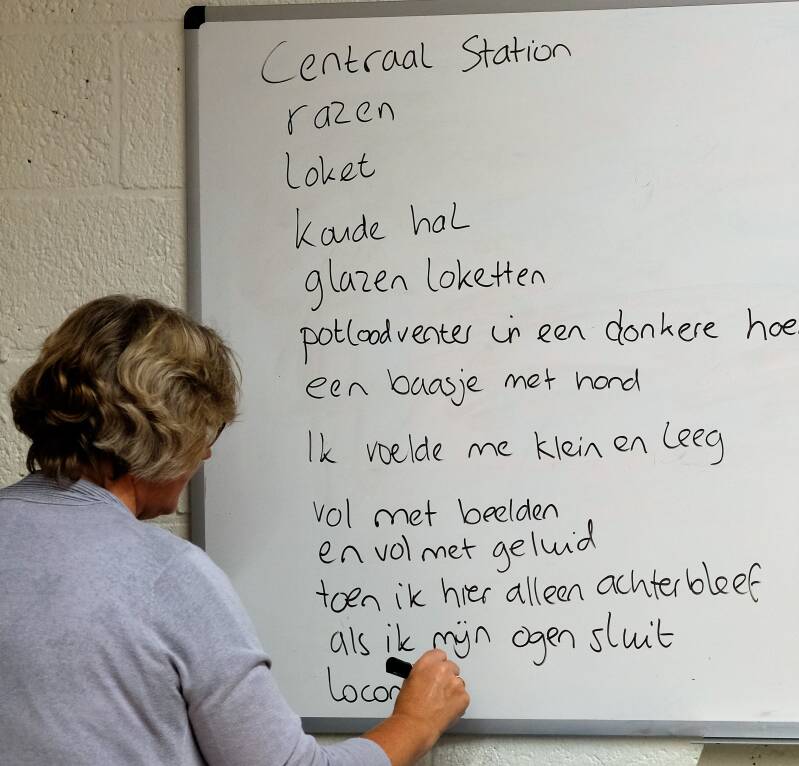 Centraal Station
razen
loket
koude hal
glazen loketten
potloodventer in een donkere hoe
een baasje met hond
Ik voelde me klein en leeg
vol met beelden
en vol met geluid
toen ik hier alleen achterbleef
als ik mijn ogen sluit